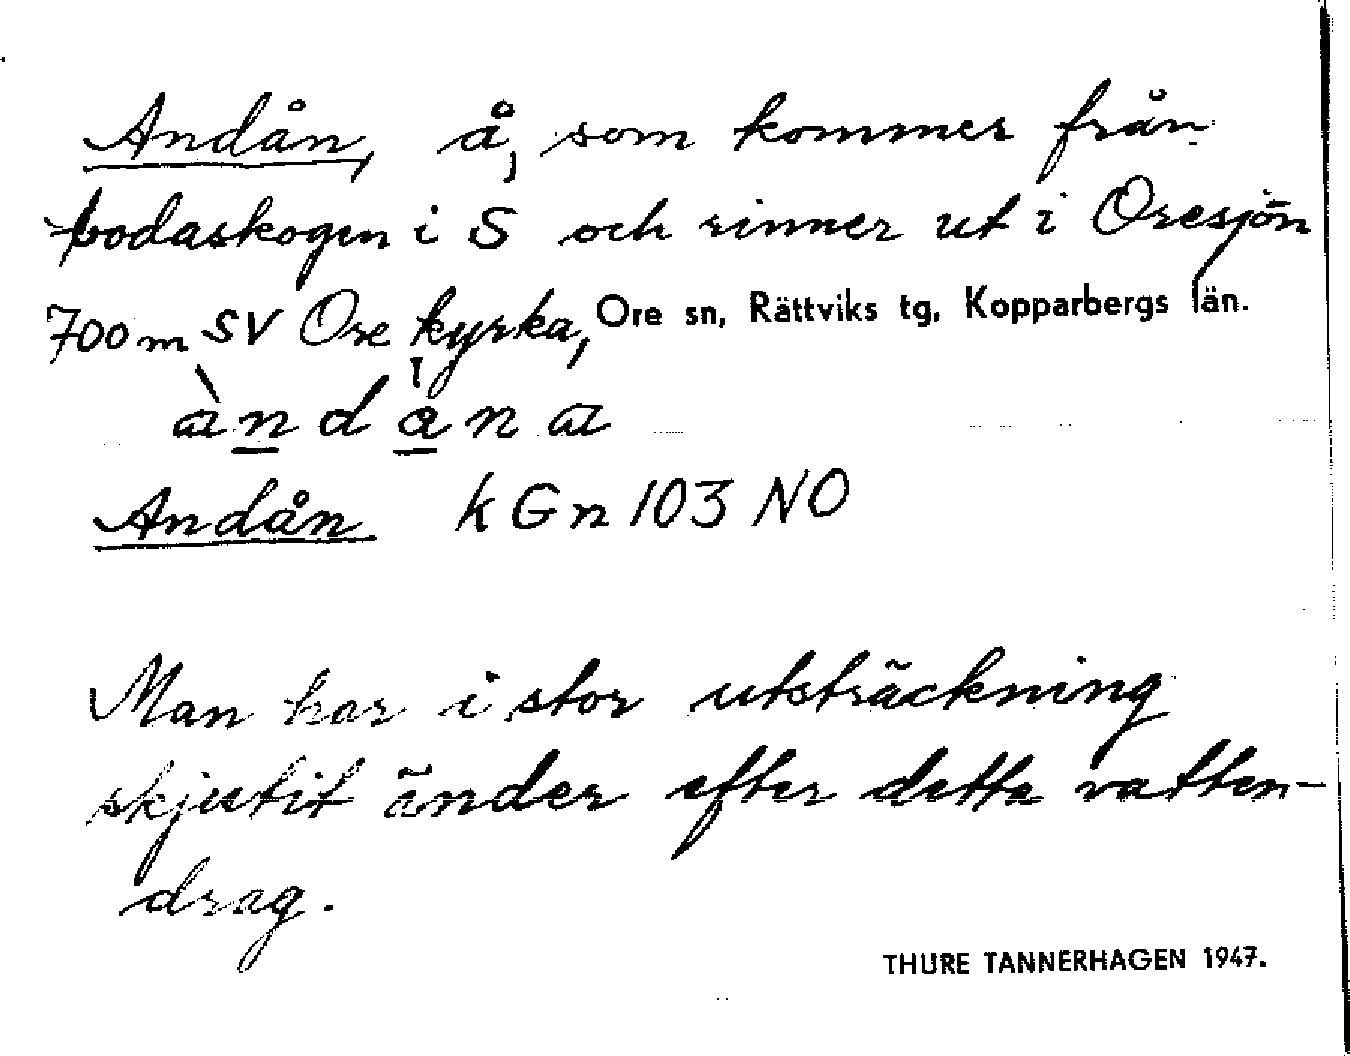 Andån, å, som kommer från
bodaskogen i S och rinner ut i Oresjön
700 m SV Ore kyrka, Ore sn, Rättviks tg, Kopparbergs län.
Andån kGn 103 NO
Man har i stor utsträckning
skjutit änder efter detta vatten-
drag.
THURE TANNERHAGEN 1947.